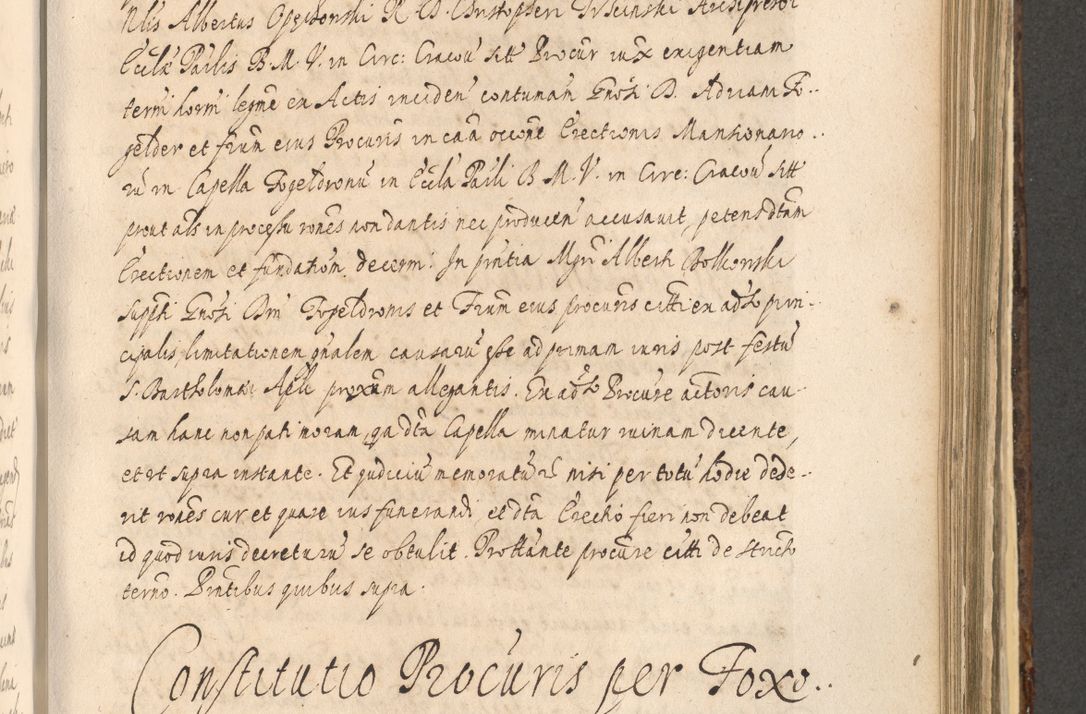 Nlis Albertus Opedonski R. D. Christopheri Trscinski Archiprebri
Ecclæ Pailis B. M. V. in Circ: Cracou sitt Procur iux exigentiam
term horni legme ex Actis inciden contumam Gnosi D. Adriani Fo..
gelder et frum eius Procuris in caa occone Erectionis Mansionario..
ru in Capella Fogeldronu in Eccla Paili B. M. V. in Circ: Cracou sitt
prout als in processu rones non dantis nec producen accusavit, petens dtam
Erectionem et fundation decerni. In pntia Mgri Alberti Bolkonski
supptti Gnosi Dni Fogeldronis et Frum eius procuris citti ex adso prin-
cipalis limitationem gnalem causaru esse ad primam iuris post festu
S. Bartholomæi Apli proxum allegantis. Ex adso Procure actoris cau-
sam hanc non pati moram, qa dta Capella minatur ruinam dicente,
et ut supra instante. Et iudiciu memoratu nisi per totu hodie dede-
rit rones cur et quare ius funerandi et dta Erectio fieri non debeat
id quod iuris decreturu se obtulit. Prottante procure citti de stricto
termo. Pntibus quibus supra.
Constitutio Procuris per Foxo..